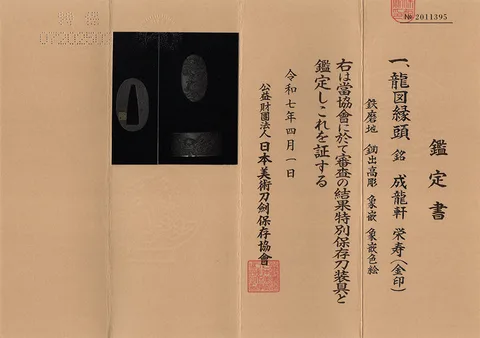 № 2011395
鑑定書
一、龍図縁頭 銘 成龍軒 栄寿(金印)
鉄磨地 鋤出高彫 象嵌 象嵌色絵
右は當協會に於て審査の結果特別保存刀装具と
鑑定しこれを証する
令和七年四月一日
公益財團法人 日本美術刀劍保存協會